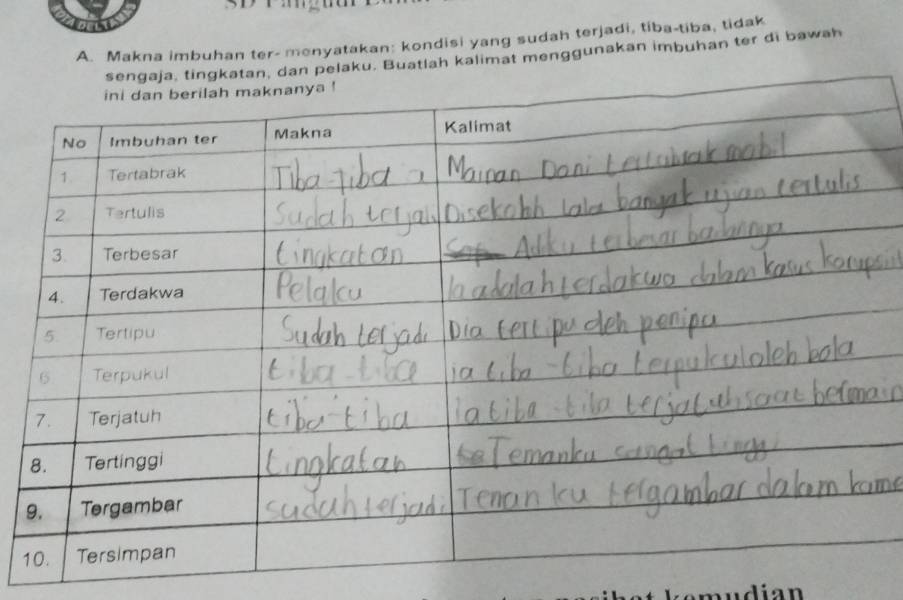 A. Makna imbuhan ter- menyatakan: kondisi yang sudah terjadi, tiba-tiba, tidak
sengaja, tingkatan, dan pelaku. Buatlah kalimat menggunakan imbuhan ter di bawah
ini dan berilah maknanya !
No Imbuhan ter Makna Kalimat
1. Tertabrak Tiba-tiba a Mainan Doni tertabrak mobil
2. Tertulis Sudah terjadi Disekolah ada banyak ujian tertulis
3. Terbesar tingkatan Adiku terbesar badannya
4. Terdakwa Pelaku Ia adalah terdakwa dalam kasus korupsi
5. Tertipu Sudah terjadi Dia tertipu oleh penipu
6. Terpukul tiba-tiba ia tiba-tiba terpukul oleh bola
7. Terjatuh tiba-tiba ia tiba-tiba terjatuh saat bermain
8. Tertinggi tingkatan Temanku sangat tinggi
9. Tergambar sudah terjadi Temanku tergambar dalam kame
10. Tersimpan
kemudian